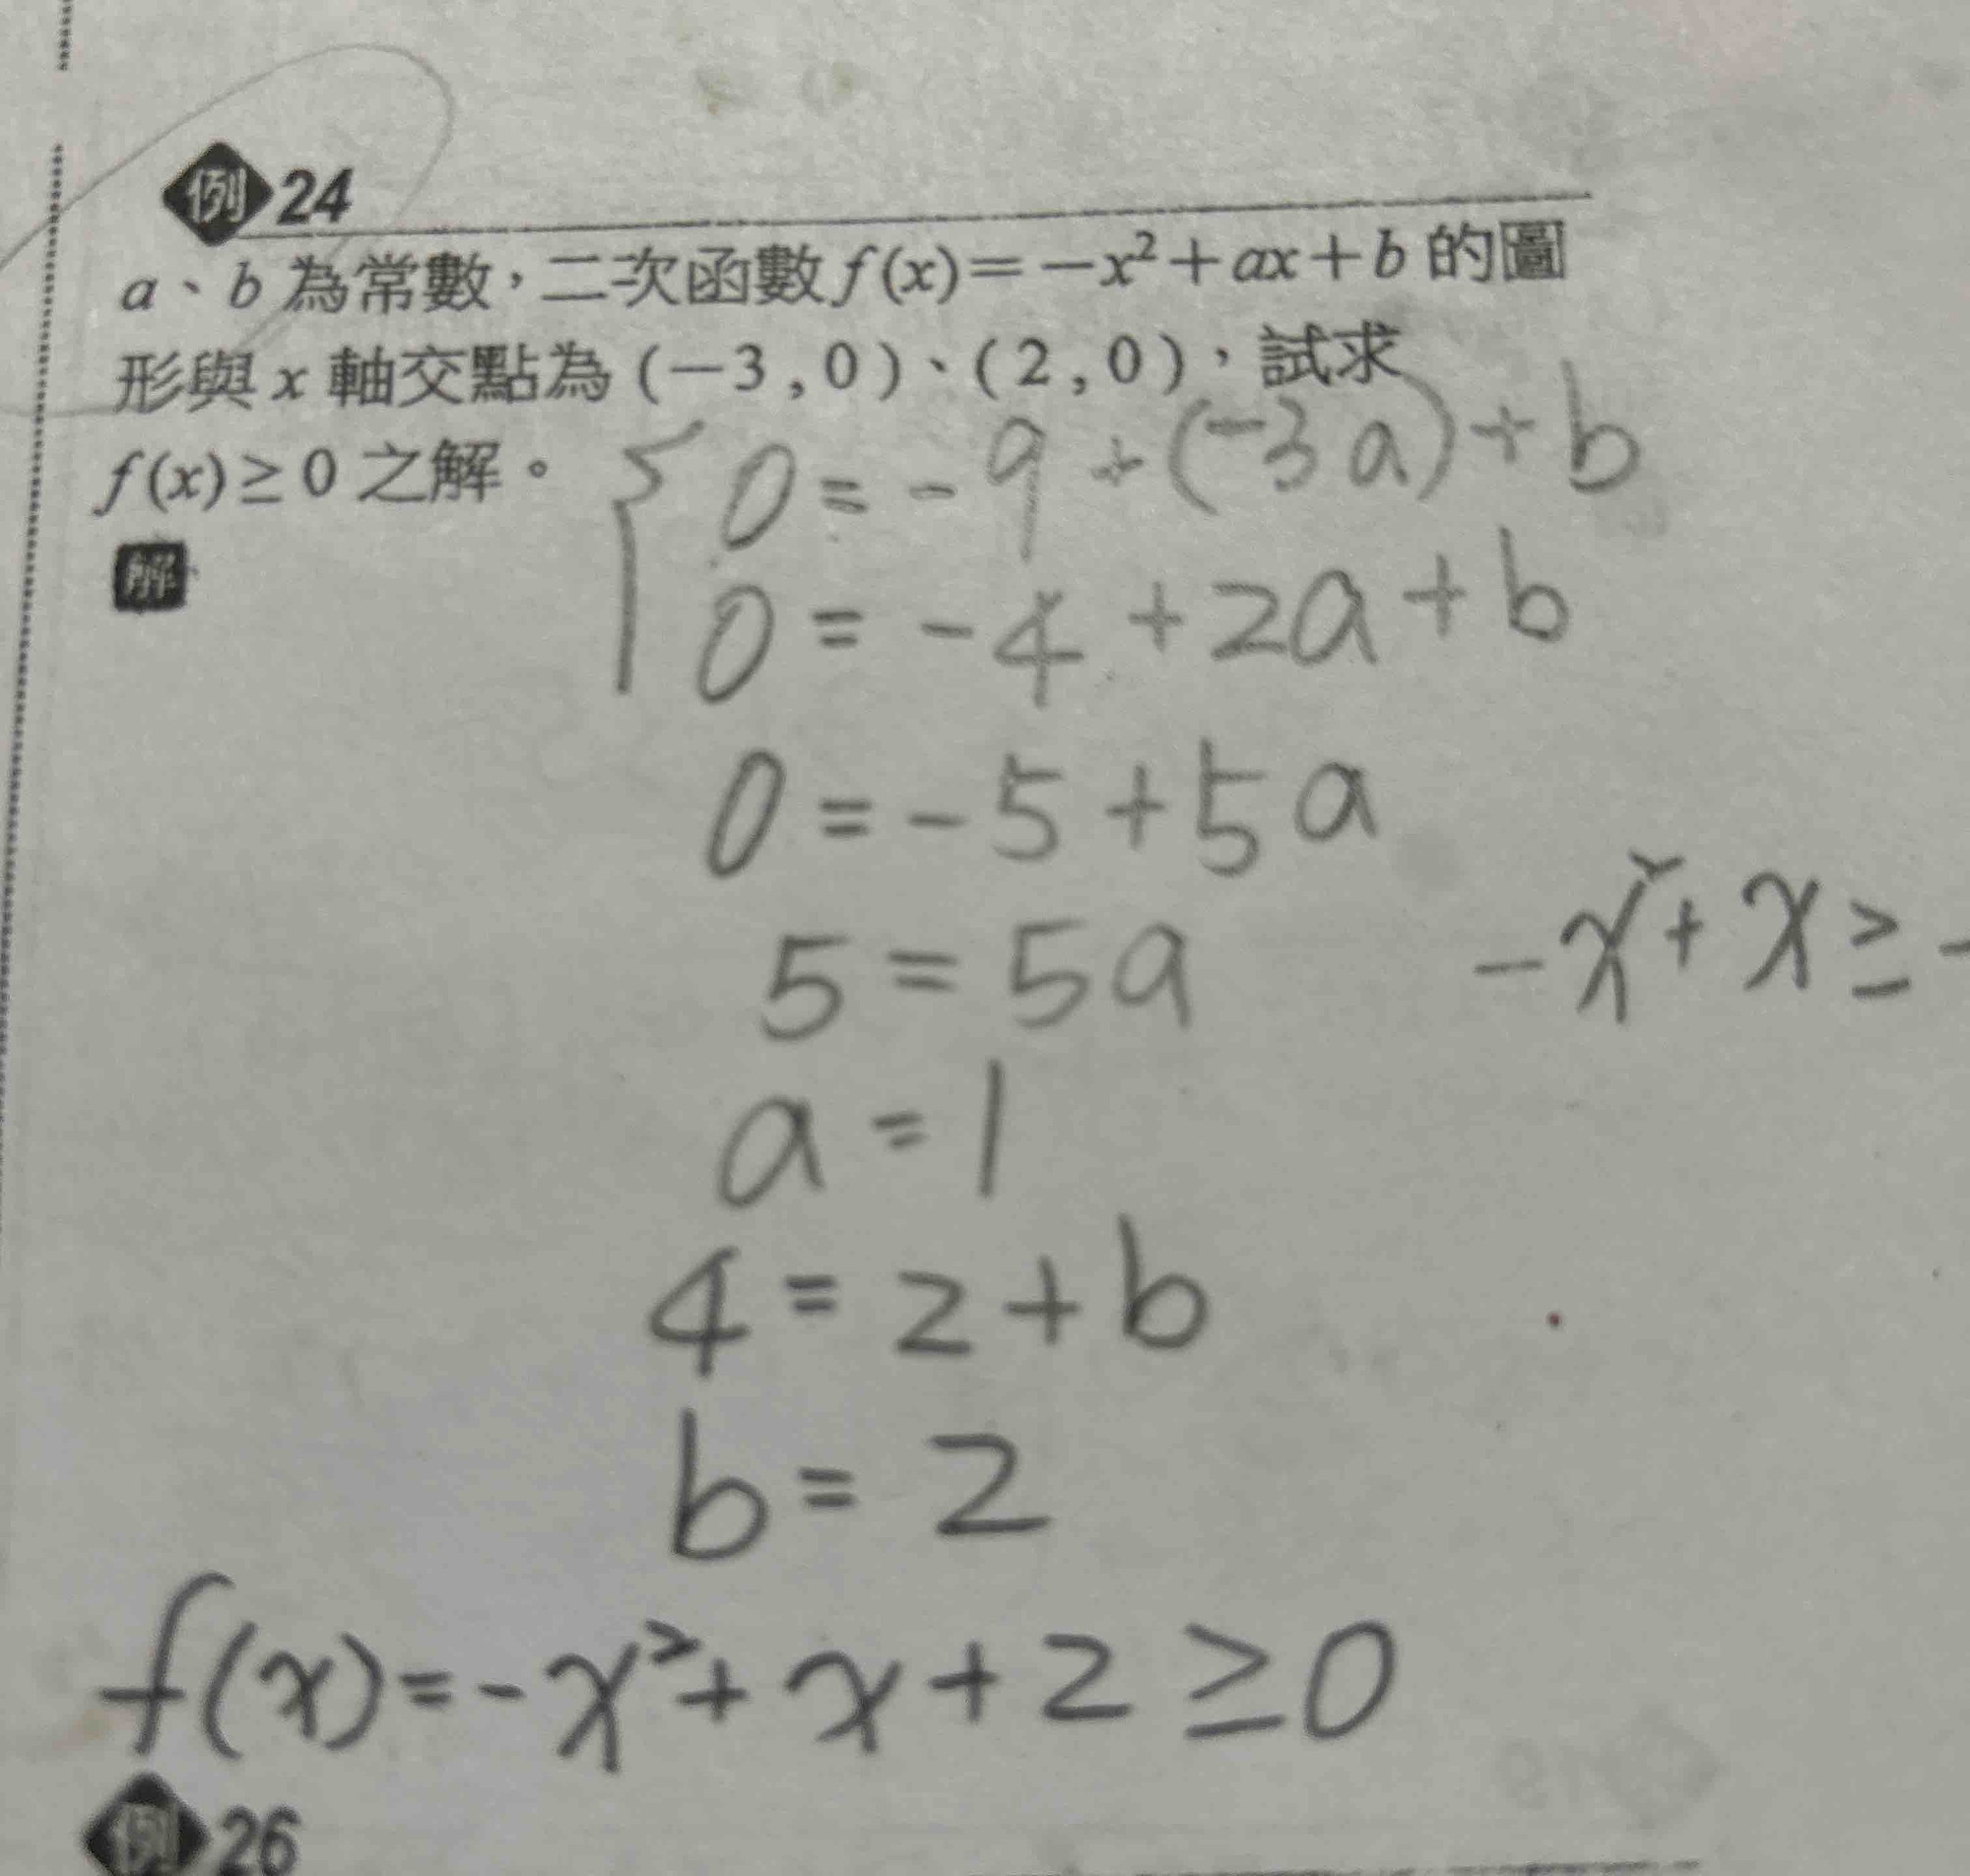 例 24
a、b 為常數，二次函數 f(x)=−x²+ax+b 的圖
形與 x 軸交點為 (−3,0)、(2,0)，試求
f(x)≥0 之解。
解
0=-9+(-3a)+b
0=-4+2a+b
0=-5+5a
5=5a
-x²+x≥-
a=1
4=2+b
b=2
f(x)=-x²+x+2≥0
例 26